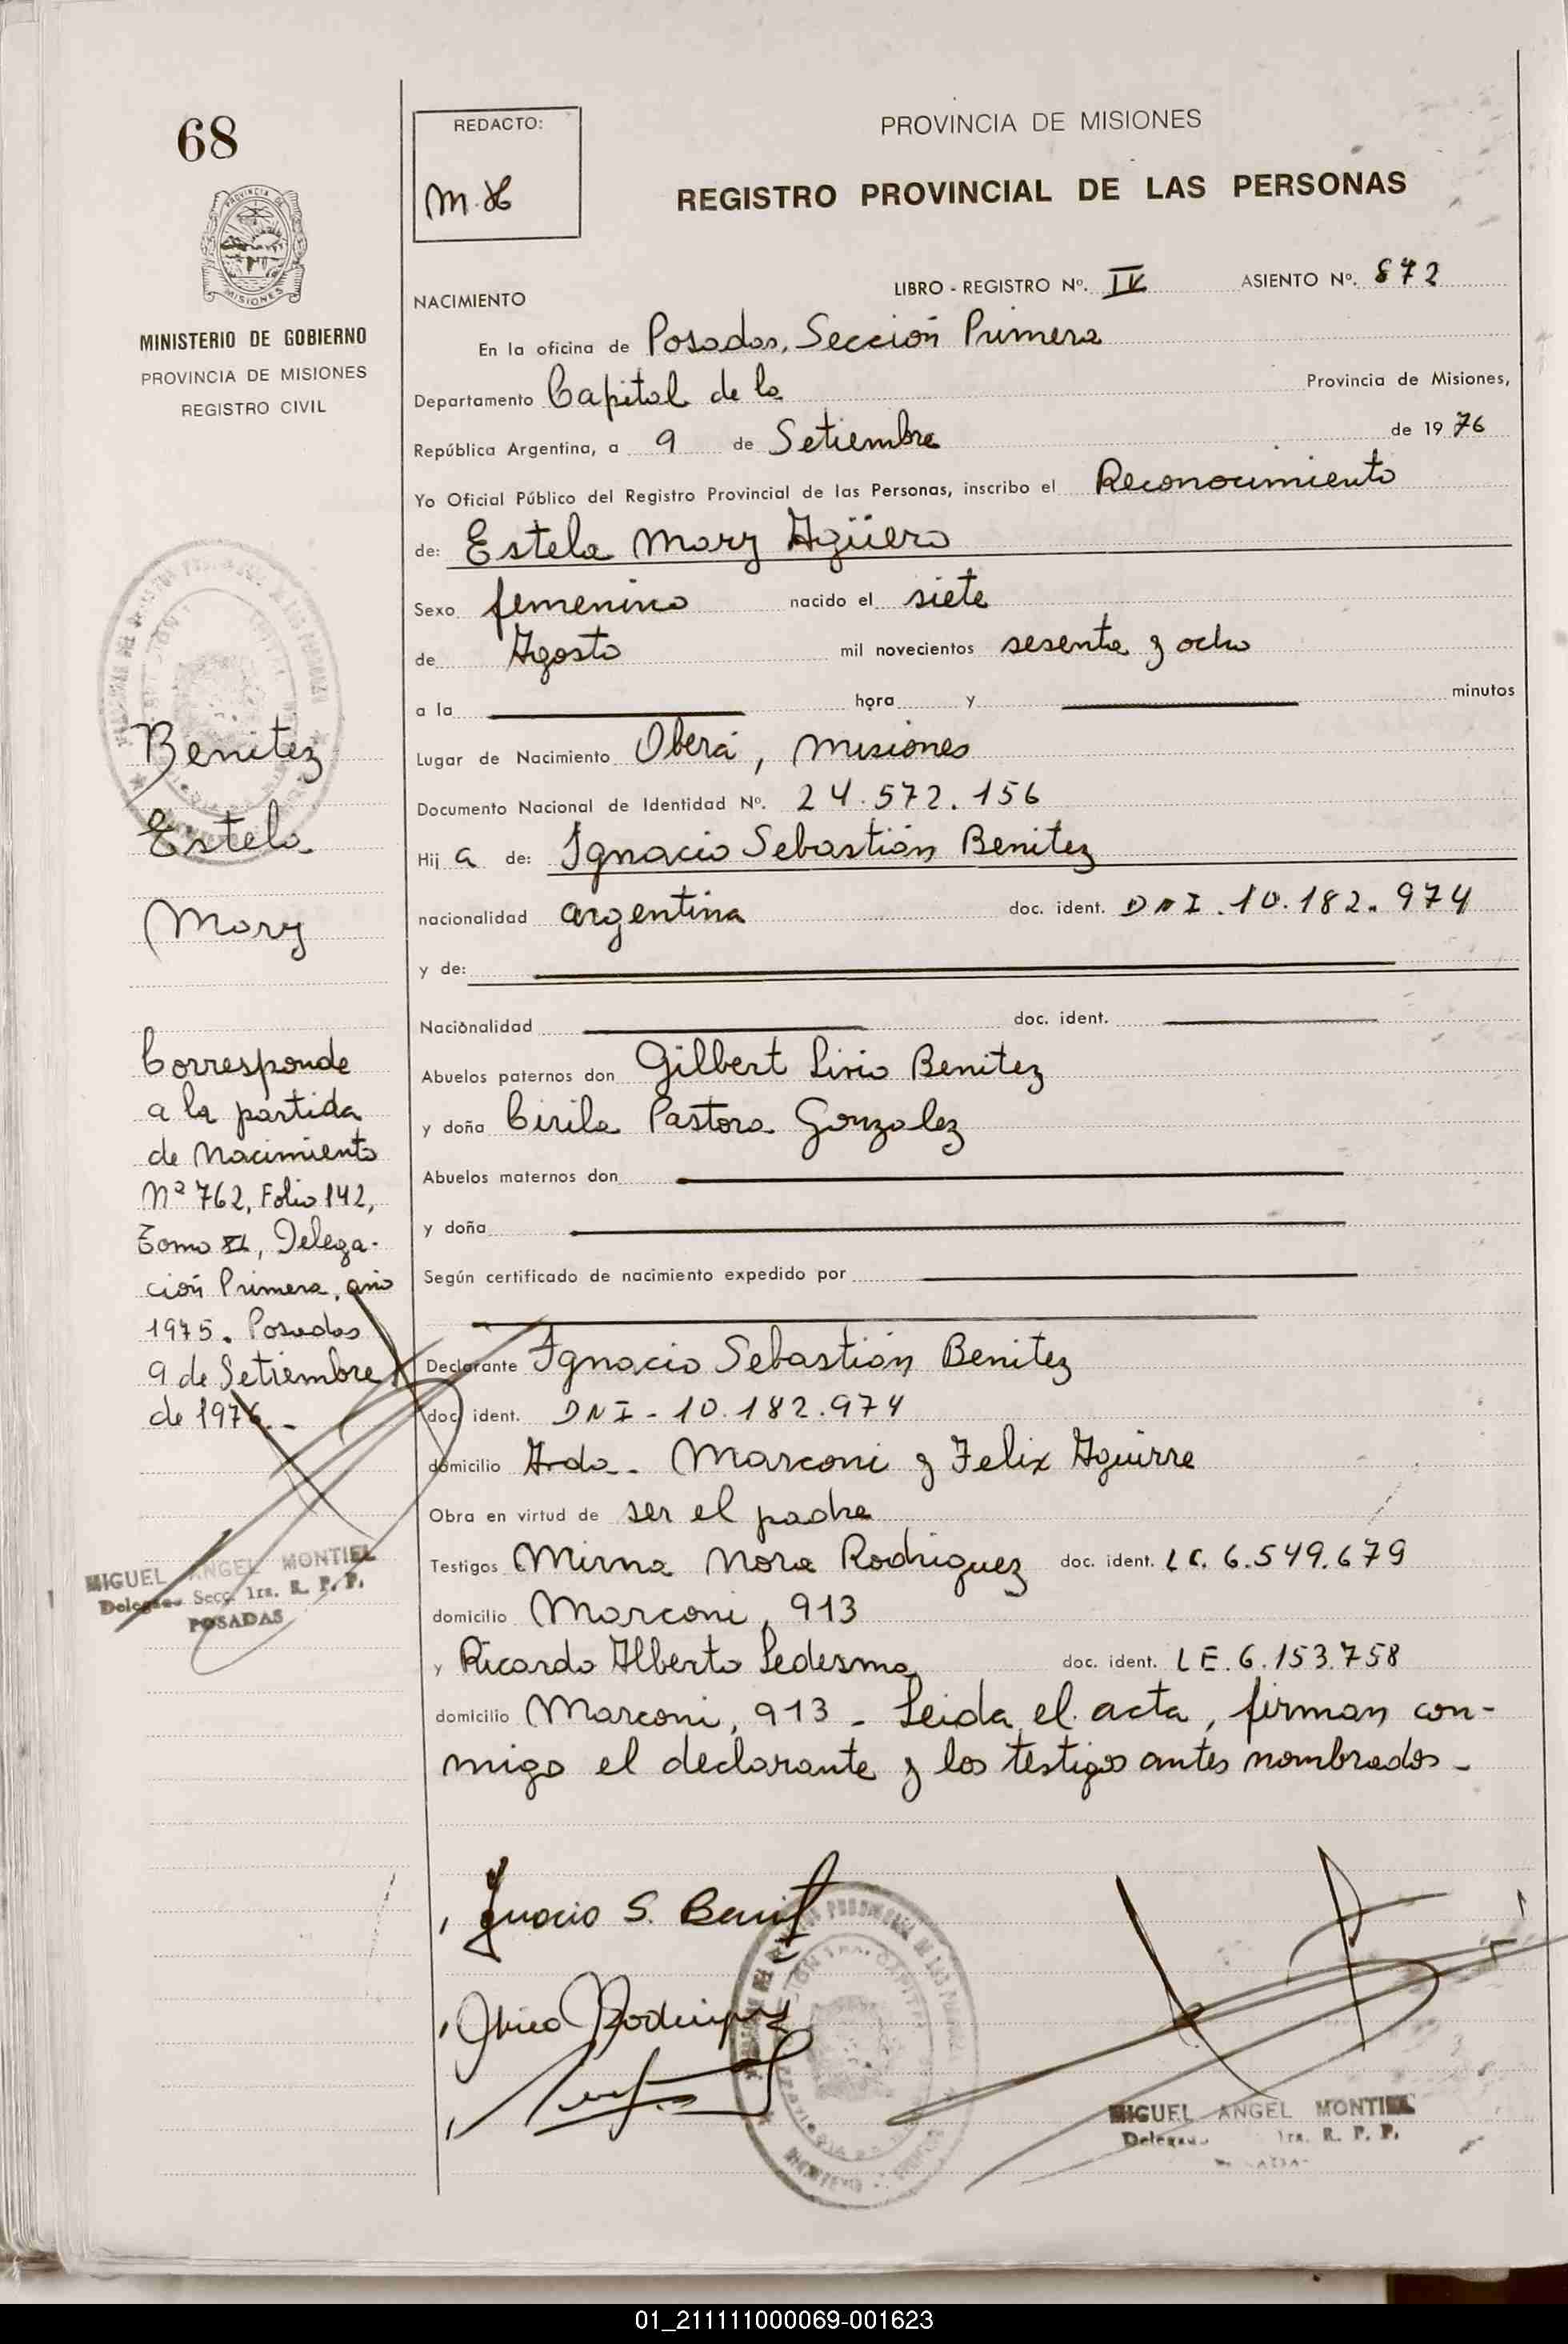 68
PROVINCIA DE MISIONES
MINISTERIO DE GOBIERNO
PROVINCIA DE MISIONES
REGISTRO CIVIL
Benitez
Estela
Mary
Corresponde
a la partida
de Nacimiento
Nº 762, Folio 142,
Tomo XI, Delega-
ción Primera, año
1975. Posadas
9 de Setiembre
de 1976.-
MIGUEL ANGEL MONTIEL
Delegado Secc. 1ra. R. P. P.
POSADAS
REDACTO:
M.H
PROVINCIA DE MISIONES
REGISTRO PROVINCIAL DE LAS PERSONAS
NACIMIENTO LIBRO - REGISTRO Nº. IV ASIENTO Nº. 872
En la oficina de Posadas, Sección Primera
Departamento Capital de la Provincia de Misiones,
República Argentina, a 9 de Setiembre de 1976
Yo Oficial Público del Registro Provincial de las Personas, inscribo el Reconocimiento
de: Estela Mary Agüero
Sexo femenino nacido el siete
de Agosto mil novecientos sesenta y ocho
a la hora y minutos
Lugar de Nacimiento Oberá, Misiones
Documento Nacional de Identidad Nº. 24.572.156
Hij a de: Ignacio Sebastián Benitez
nacionalidad argentina doc. ident. DNI. 10.182.974
y de:
Nacionalidad doc. ident.
Abuelos paternos don Gilbert Livio Benitez
y doña Cirila Pastora Gonzalez
Abuelos maternos don
y doña
Según certificado de nacimiento expedido por
Declarante Ignacio Sebastián Benitez
doc. ident. DNI - 10.182.974
domicilio Avda. Marconi y Felix Aguirre
Obra en virtud de ser el padre
Testigos Mirna Nora Rodriguez doc. ident. LC. 6.549.679
domicilio Marconi, 913
y Ricardo Alberto Ledesma doc. ident. LE. 6.153.758
domicilio Marconi, 913 - Leida el acta, firman con-
migo el declarante y los testigos antes nombrados -
Ignacio S. Benit
Rodriguez
MIGUEL ANGEL MONTIEL
Delegado 1ra. R. P. P.
01_211111000069-001623